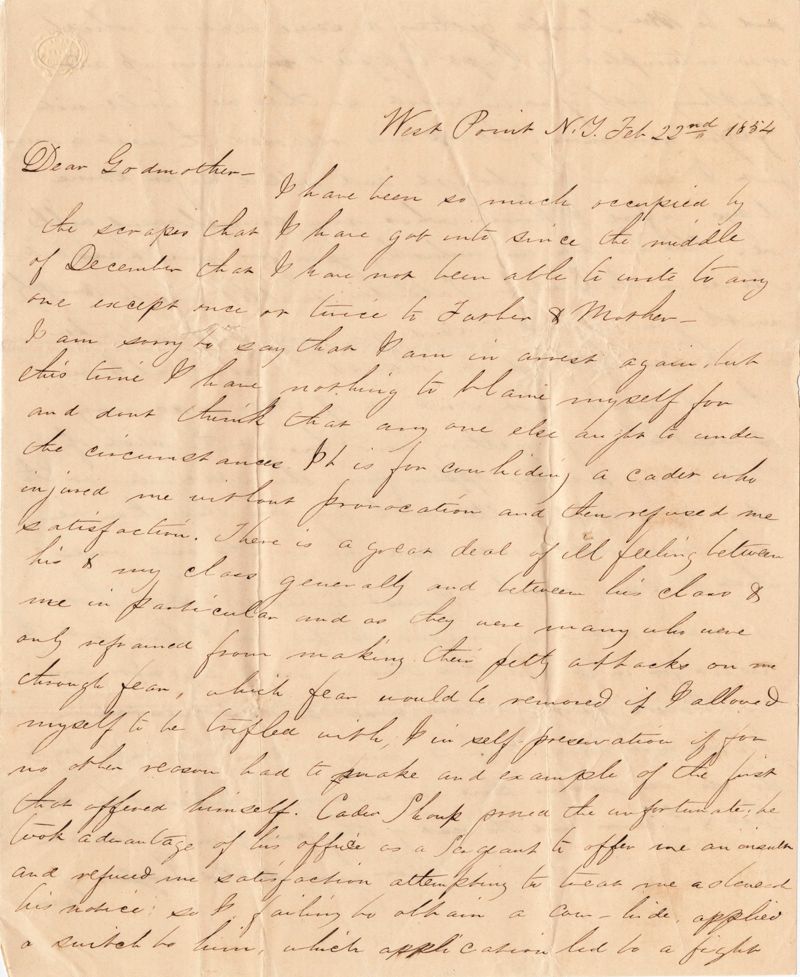 West Point N.Y. Feb 22nd 1854
Dear Godmother—
I have been so much occupied by
the scrapes that I have got into since the middle
of December that I have not been able to write to any
one except once or twice to Father & Mother—
I am sorry to say that I am in arrest again, but
this time I have nothing to blame myself for
and dont think that any one else ought to under
the circumstances It is for cowhiding a cadet who
injured me without provocation and then refused me
satisfaction. There is a great deal of ill feeling between
his & my class generally and between his class &
me in particular and as they were many who were
only refrained from making their petty attacks on me
through fear, which fear would be removed if I allowed
myself to be trifled with, I in self-preservation if for
no other reason had to make and example of the first
that offered himself. Cadet Shoup proved the unfortunate; he
took advantage of his office as a Sergeant to offer me an insult
and refused me satisfaction attempting to treat me as beneath
his notice; so I failing to obtain a cow-hide, applied
a switch to him, which application led to a fight